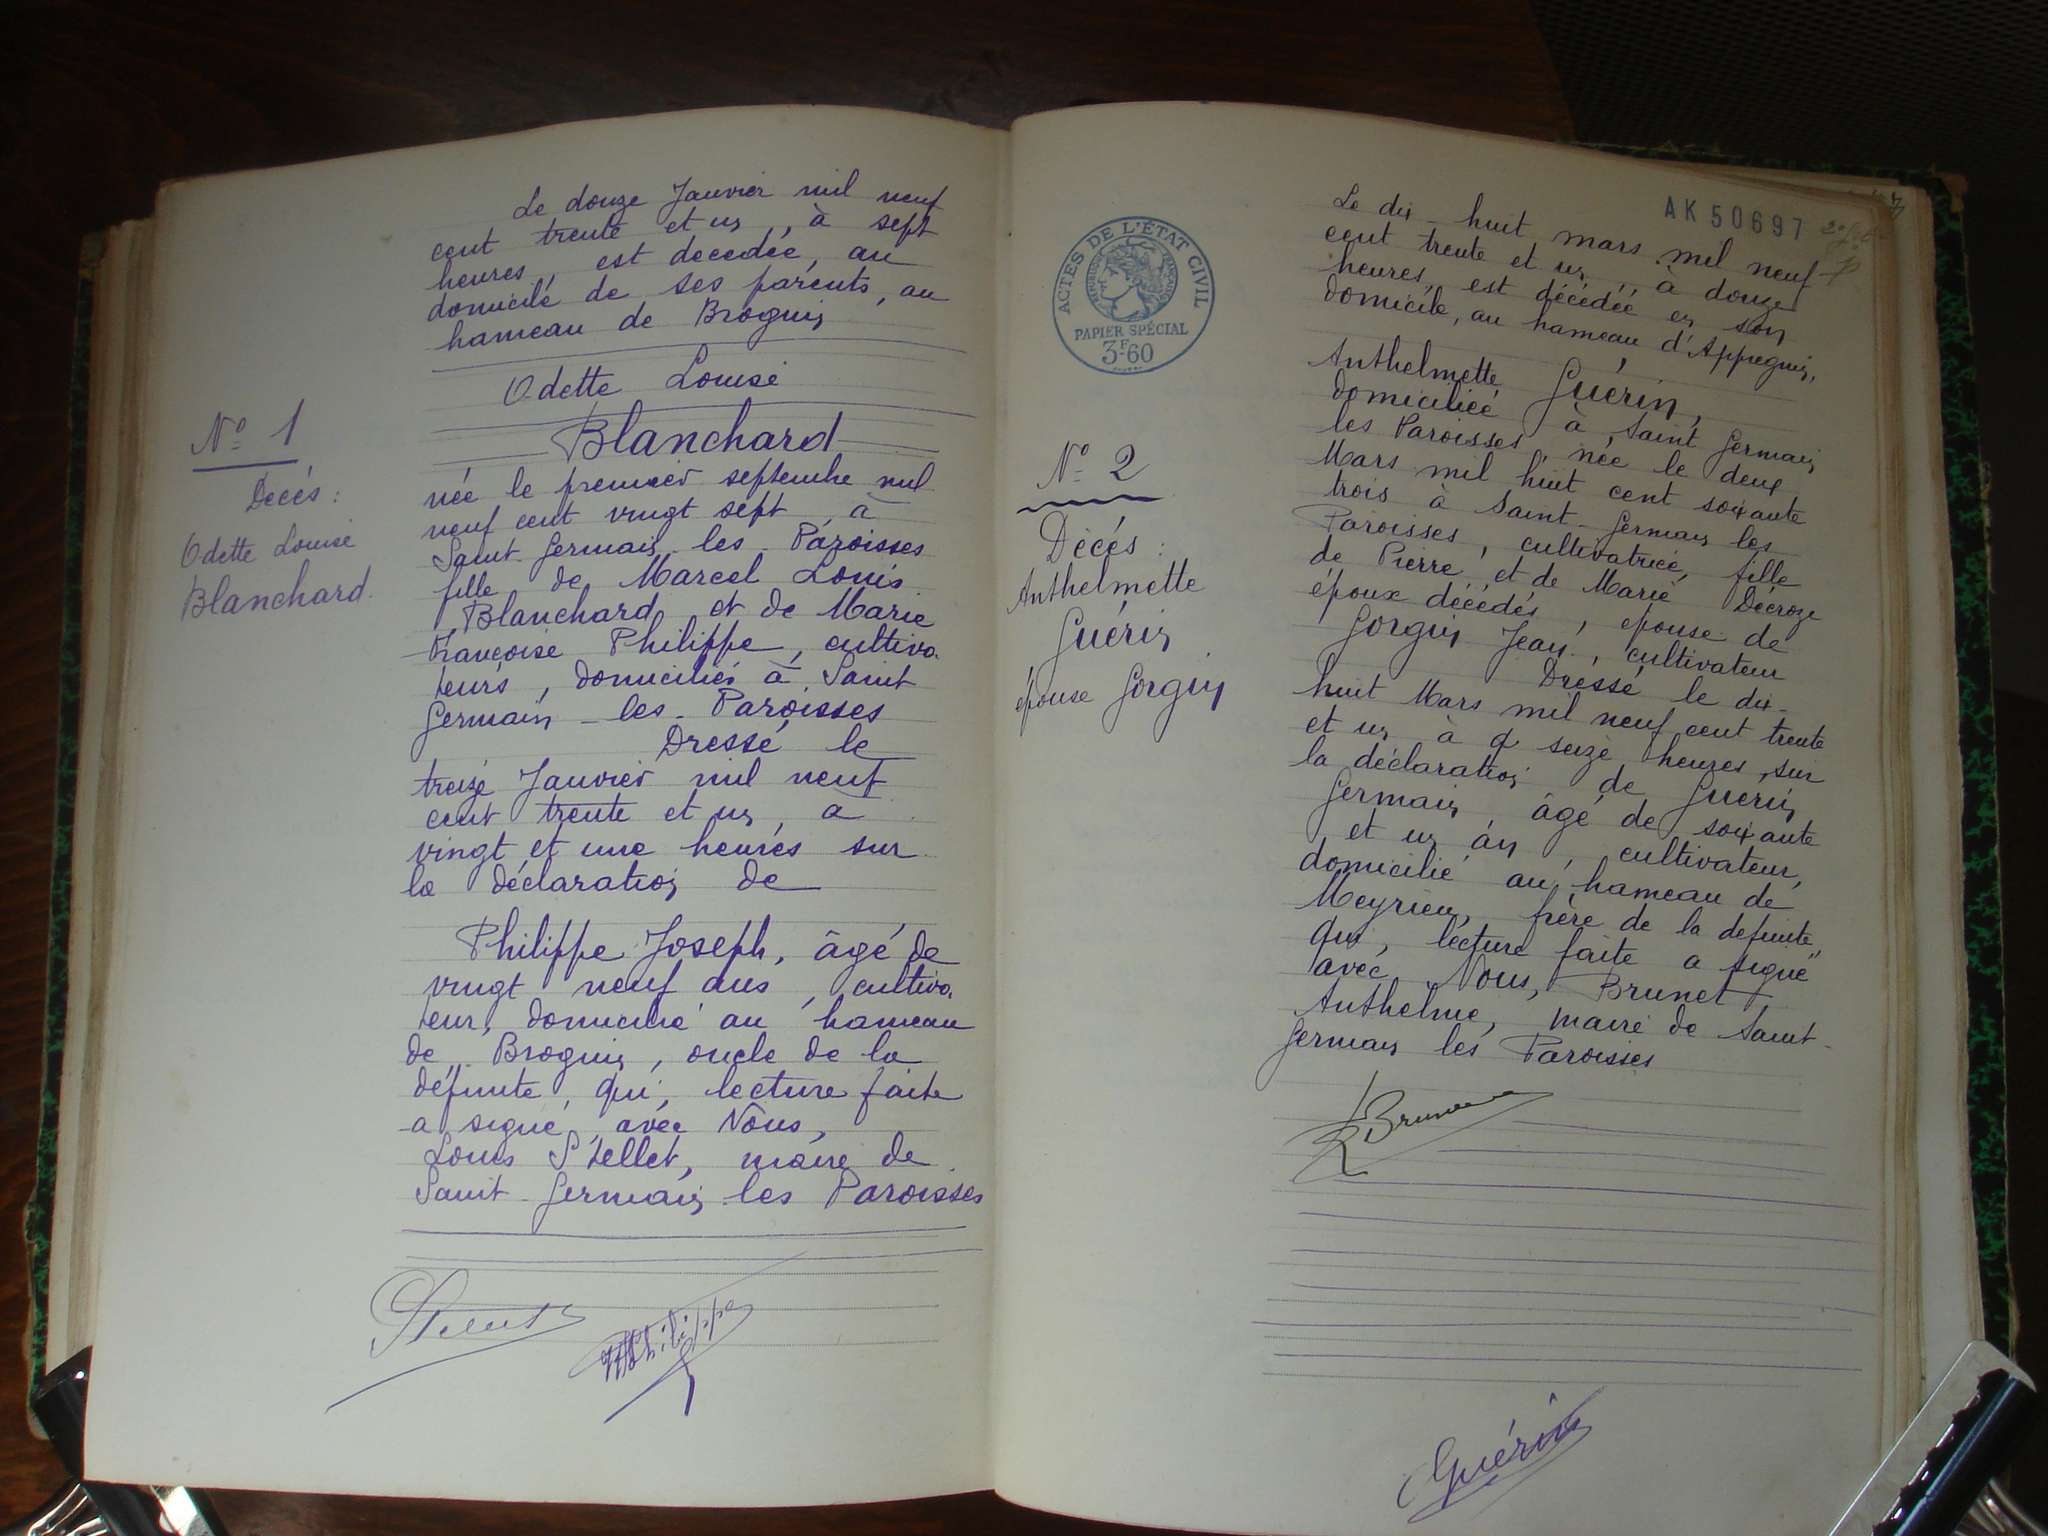 Le douze Janvier mil neuf
cent trente et un, à sept
heures, est décédée, au
domicile de ses parents, au
hameau de Brognin
Odette Louise
Blanchard
née le premier septembre mil
neuf cent vingt sept, à
Saint-Germain-les-Paroisses
fille de Marcel Louis
Blanchard et de Marie
Françoise Philippe, cultiva-
teurs, domiciliés à Saint
Germain-les-Paroisses
Dressé le
treize Janvier mil neuf
cent trente et un, à
vingt et une heures sur
la déclaration de
Philippe Joseph, âgé de
vingt neuf ans, cultiva-
teur, domicilié au hameau
de Brognin, oncle de la
défunte, qui, lecture faite
a signé, avec Nous,
Louis Stellet, maire de
Saint-Germain-les Paroisses
Philippe
N° 1
Décés:
Odette Louise
Blanchard.
ACTES DE L'ÉTAT CIVIL
RÉPUBLIQUE FRANÇAISE
PAPIER SPÉCIAL
3F.60
N° 2
Décés:
Anthelmette
Guérin
épouse Gorguy
AK 50697
Le dix-huit mars mil neuf
cent trente et un, à douze
heures, est décédée en son
domicile, au hameau d'Appregnin,
Anthelmette Guérin,
domiciliée à Saint Germain
les Paroisses, née le deux
Mars mil huit cent soixante
trois à Saint-Germain les
Paroisses, cultivatrice, fille
de Pierre et de Marie Décroze
époux décédés, épouse de
Gorguy Jean, cultivateur
Dressé le dix-
huit Mars mil neuf cent trente
et un à q seize heures, sur
la déclaration de Guérin
Germain âgé de soixante
et un an, cultivateur,
domicilié au hameau de
Meyrieu, frère de la défunte,
qui, lecture faite a signé
avec Nous, Brunet
Anthelme, maire de Saint-
Germain les Paroisses
Guérin